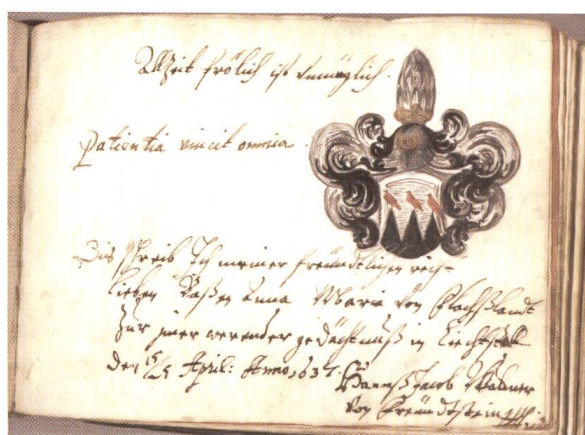 Allzeit frölich ist unmüglich.
Patientia vincit omnia.
Dis schreib Ich meiner freündtlichen
lieben Baßen Anna Maria von Flachßlandt
Zur gedächtnuß in
den 15/25 April: Anno 1637.
Hannß Jacob Waldner
von Freündtstein